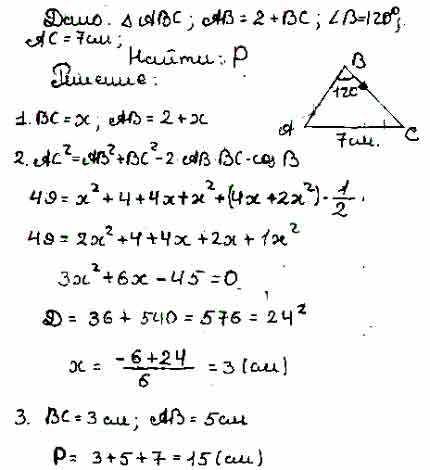 Дано: △ABC; AB = 2 + BC; ∠B=120°;
AC = 7см;
Найти: P
Решение:
B
120
A
7см.
C
1. BC = x; AB = 2 + x
2. AC² = AB² + BC² - 2·AB·BC·cos B
49 = x² + 4 + 4x + x² + (4x + 2x²)·1/2
49 = 2x² + 4 + 4x + 2x + 1x²
3x² + 6x - 45 = 0
D = 36 + 540 = 576 = 24²
x = (-6+24)/6 = 3 (см)
3. BC = 3 см; AB = 5 см
P = 3 + 5 + 7 = 15 (см)